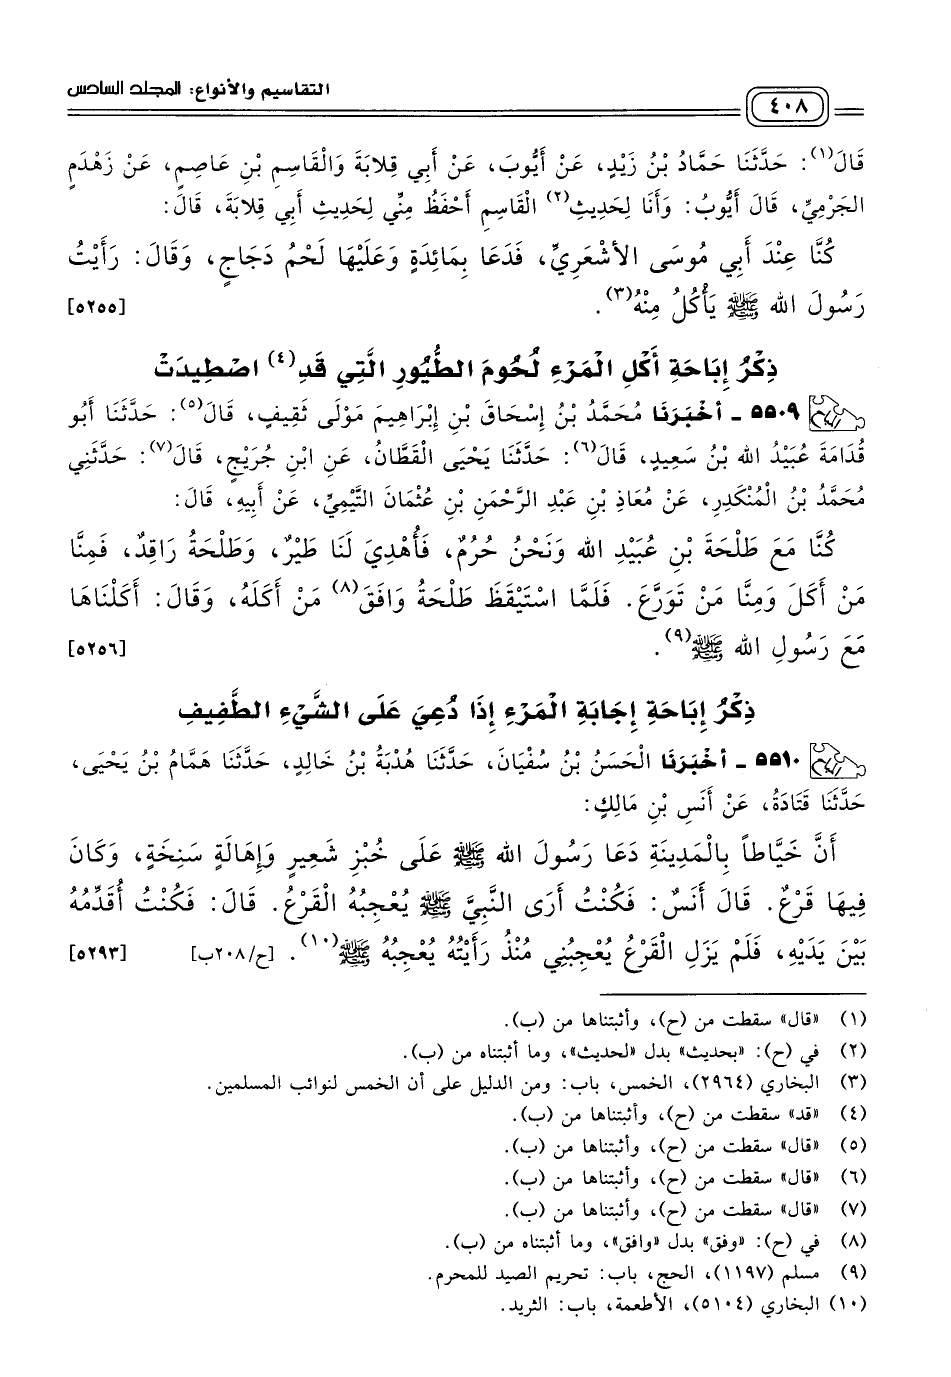 التقاسيم والأنواع: المجلد السادس
٤٠٨
قَالَ(١): حَدَّثَنَا حَمَّادُ بْنُ زَيْدٍ، عَنْ أَيُّوبَ، عَنْ أَبِي قِلابَةَ وَالْقَاسِمِ بْنِ عَاصِمٍ، عَنْ زَهْدَمٍ
الجَرْمِيِّ، قَالَ أَيُّوبُ: وَأَنَا لِحَدِيثِ(٢) الْقَاسِمِ أَحْفَظُ مِنِّي لِحَدِيثِ أَبِي قِلابَةَ، قَالَ:
كُنَّا عِنْدَ أَبِي مُوسَى الأشْعَرِيِّ، فَدَعَا بِمَائِدَةٍ وَعَلَيْهَا لَحْمُ دَجَاجٍ، وَقَالَ: رَأَيْتُ
رَسُولَ الله ﷺ يَأْكُلُ مِنْهُ(٣). [٥٢٥٥]
ذِكْرُ إِبَاحَةِ أَكْلِ الْمَرْءِ لُحُومَ الطُّيُورِ الَّتِي قَدِ(٤) اصْطِيدَتْ
٥٥٠٩ - أَخْبَرَنَا مُحَمَّدُ بْنُ إِسْحَاقَ بْنِ إِبْرَاهِيمَ مَوْلَى ثَقِيفٍ، قَالَ(٥): حَدَّثَنَا أَبُو
قُدَامَةَ عُبَيْدُ الله بْنُ سَعِيدٍ، قَالَ(٦): حَدَّثَنَا يَحْيَى الْقَطَّانُ، عَنِ ابْنِ جُرَيْجٍ، قَالَ(٧): حَدَّثَنِي
مُحَمَّدُ بْنُ الْمُنْكَدِرِ، عَنْ مُعَاذِ بْنِ عَبْدِ الرَّحْمَنِ بْنِ عُثْمَانَ التَّيْمِيِّ، عَنْ أَبِيهِ، قَالَ:
كُنَّا مَعَ طَلْحَةَ بْنِ عُبَيْدِ الله وَنَحْنُ حُرُمٌ، فَأُهْدِيَ لَنَا طَيْرٌ، وَطَلْحَةُ رَاقِدٌ، فَمِنَّا
مَنْ أَكَلَ وَمِنَّا مَنْ تَوَرَّعَ. فَلَمَّا اسْتَيْقَظَ طَلْحَةُ وَافَقَ(٨) مَنْ أَكَلَهُ، وَقَالَ: أَكَلْنَاهَا
مَعَ رَسُولِ الله ﷺ(٩). [٥٢٥٦]
ذِكْرُ إِبَاحَةِ إِجَابَةِ الْمَرْءِ إِذَا دُعِيَ عَلَى الشَّيْءِ الطَّفِيفِ
٥٥١٠ - أَخْبَرَنَا الْحَسَنُ بْنُ سُفْيَانَ، حَدَّثَنَا هُدْبَةُ بْنُ خَالِدٍ، حَدَّثَنَا هَمَّامُ بْنُ يَحْيَى،
حَدَّثَنَا قَتَادَةُ، عَنْ أَنَسِ بْنِ مَالِكٍ:
أَنَّ خَيَّاطاً بِالْمَدِينَةِ دَعَا رَسُولَ الله ﷺ عَلَى خُبْزِ شَعِيرٍ وَإِهَالَةٍ سَنِخَةٍ، وَكَانَ
فِيهَا قَرْعٌ. قَالَ أَنَسٌ: فَكُنْتُ أَرَى النَّبِيَّ ﷺ يُعْجِبُهُ الْقَرْعُ. قَالَ: فَكُنْتُ أُقَدِّمُهُ
بَيْنَ يَدَيْهِ، فَلَمْ يَزَلِ الْقَرْعُ يُعْجِبُنِي مُنْذُ رَأَيْتُهُ يُعْجِبُهُ ﷺ(١٠). [ح/٢٠٨ب] [٥٢٩٣]
(١) «قال» سقطت من (ح)، وأثبتناها من (ب).
(٢) في (ح): «بحديث» بدل «لحديث»، وما أثبتناه من (ب).
(٣) البخاري (٢٩٦٤)، الخمس، باب: ومن الدليل على أن الخمس لنوائب المسلمين.
(٤) «قد» سقطت من (ح)، وأثبتناها من (ب).
(٥) «قال» سقطت من (ح)، وأثبتناها من (ب).
(٦) «قال» سقطت من (ح)، وأثبتناها من (ب).
(٧) «قال» سقطت من (ح)، وأثبتناها من (ب).
(٨) في (ح): «وفق» بدل «وافق»، وما أثبتناه من (ب).
(٩) مسلم (١١٩٧)، الحج، باب: تحريم الصيد للمحرم.
(١٠) البخاري (٥١٠٤)، الأطعمة، باب: الثريد.